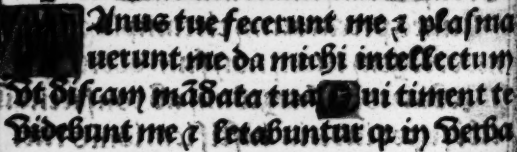 Anus tue fecerunt me ⁊ plaſma
uerunt me da michi intellectum
Vt diſcam mādata tua ui timent te
Videbunt me ⁊ letabuntur qꝛ in verba